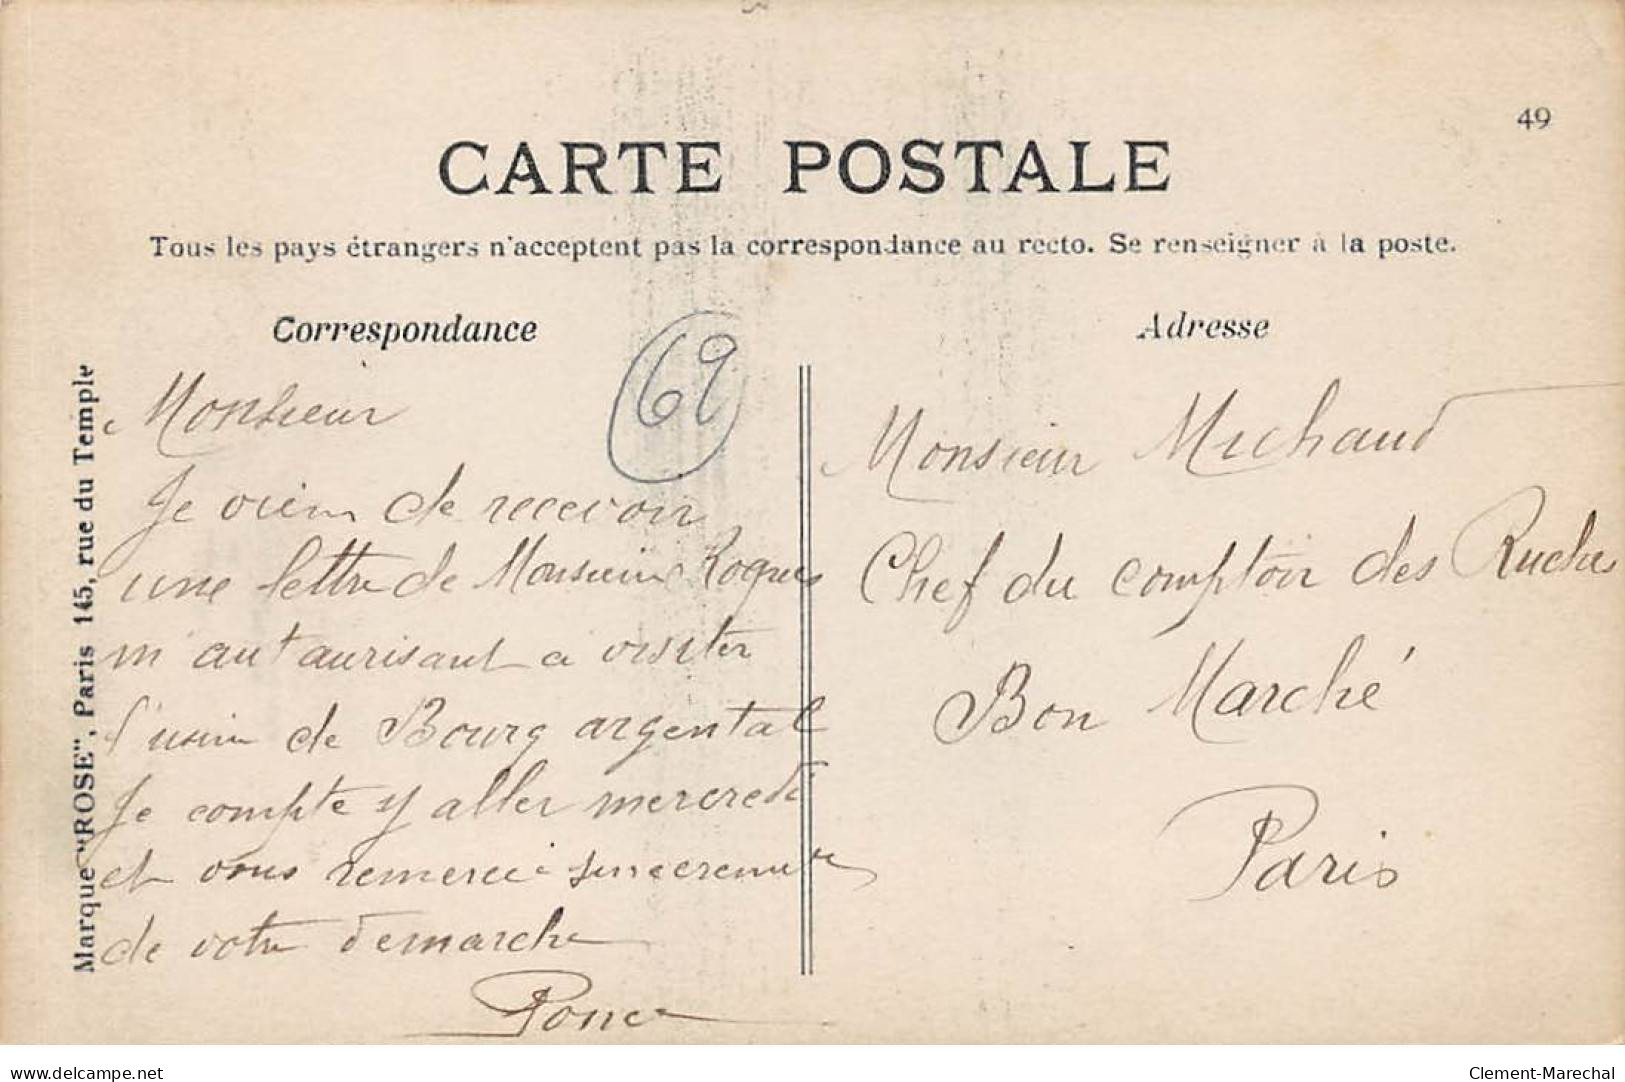 49
CARTE POSTALE
Tous les pays étrangers n'acceptent pas la correspondance au recto. Se renseigner à la poste.
Correspondance
Adresse
Marque "ROSE", Paris 145, rue du Temple
69
Monsieur
Je viens de recevoir
une lettre de Monsieur Rogues
m'autaurisant a visiter
l'usine de Bourg argental
Je compte y aller mercredi
et vous remercie sincerement
de votre demarche
Ponce
Monsieur Michaud
Chef du comptoir des Ruches
Bon Marché
Paris
delcampe.net
Clement-Marechal